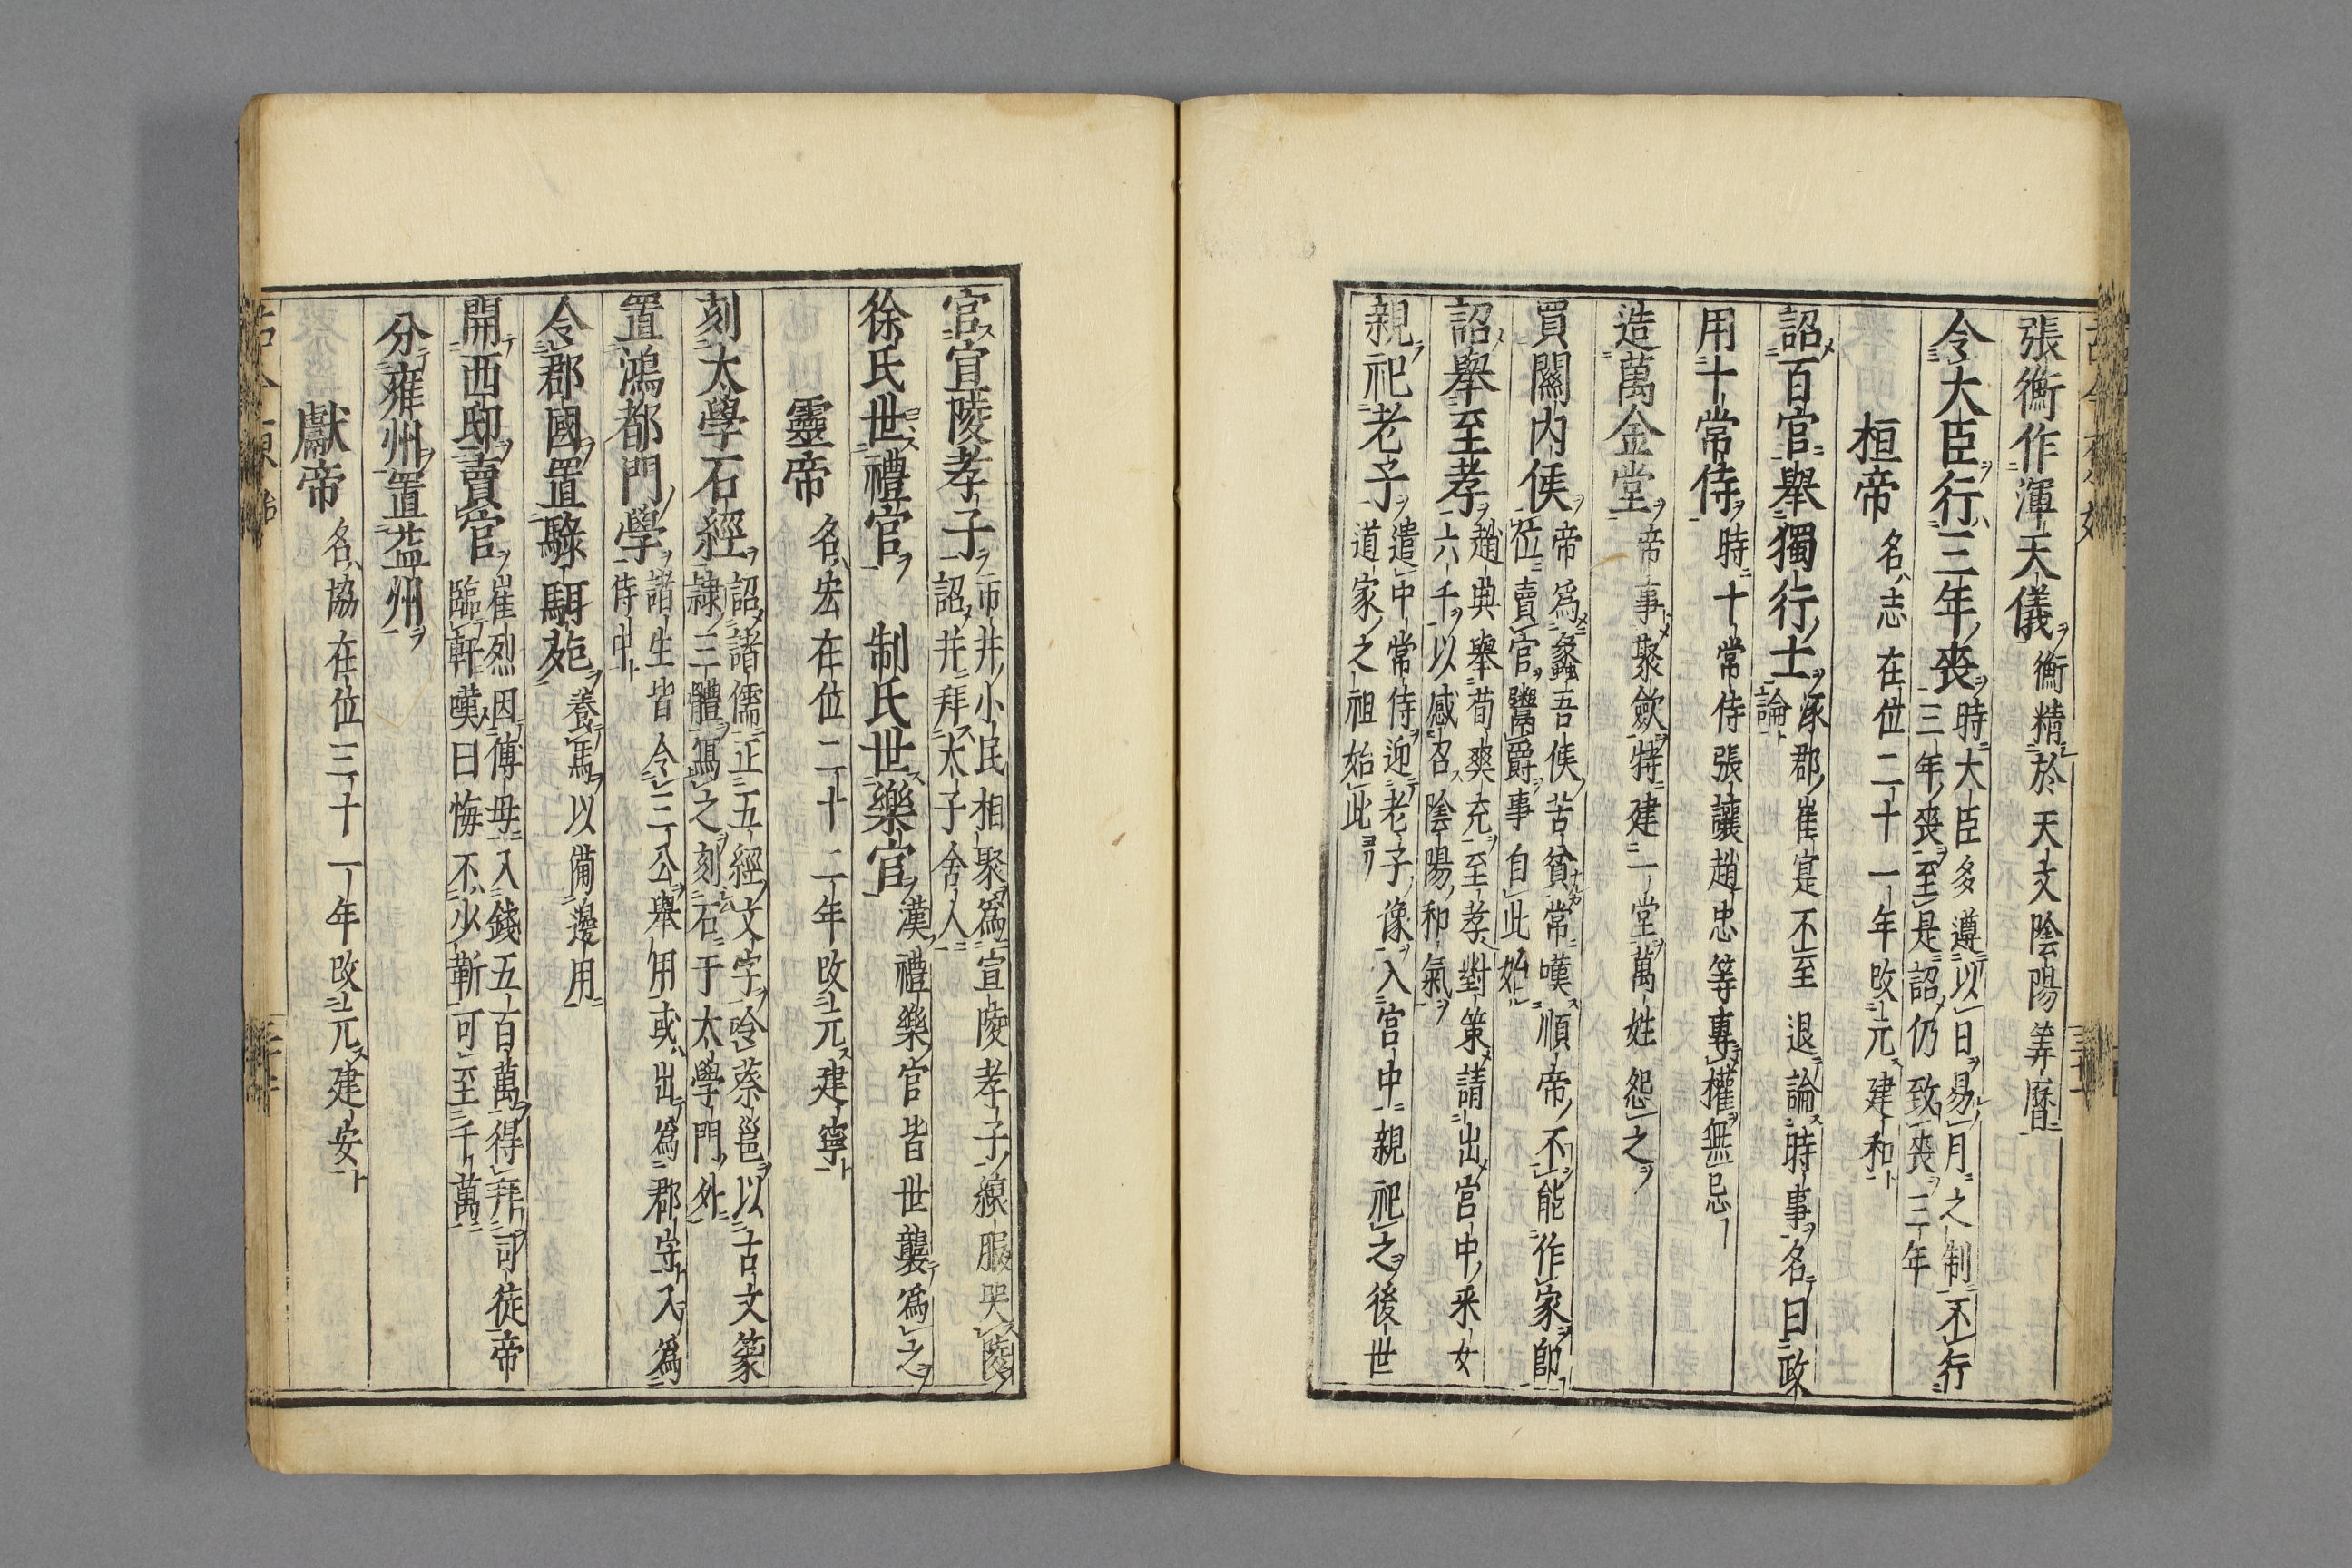 張衡作渾天儀 衡精於天文陰陽筭曆
令大臣行三年喪 時大臣多遵以日易月之制不行
三年喪至是詔仍致喪三年
桓帝 名志在位二十一年改元建和
詔百官舉獨行士 涿郡崔寔不至退論時事名曰政
論
用十常侍 時十常侍張讓趙忠等專權無忌
造萬金堂 帝事聚斂特建一堂萬姓怨之
買關內侯 帝爲蠡吾侯苦貧常嘆順帝不能作家師
位賣官鬻爵事自此始
詔舉至孝 趙典舉荀爽充至孝對策請出宮中采女
六千以感召陰陽和氣
親祀老子 遣中常侍迎老子像入宮中親祀之後世
道家之祖始此
官宣陵孝子 市井小民相聚爲宣陵孝子縗服哭陵
詔井拜太子舍人
徐氏世禮官 制氏世樂官 漢禮樂官皆世襲爲之
靈帝 名宏在位二十二年改元建寧
刻太學石經 詔諸儒正五經文字令蔡邕以古文篆
隷三體寫之刻石于太學門外
置鴻都門學 諸生皆令三公舉用或出爲郡守入爲
侍中
令郡國置騄駬苑 養馬以備邊用
開西邸賣官 崔烈因傅母入錢五百萬得拜司徒帝
臨軒嘆曰悔不少靳可至千萬
分雍州置益州
獻帝 名協在位三十一年改元建安